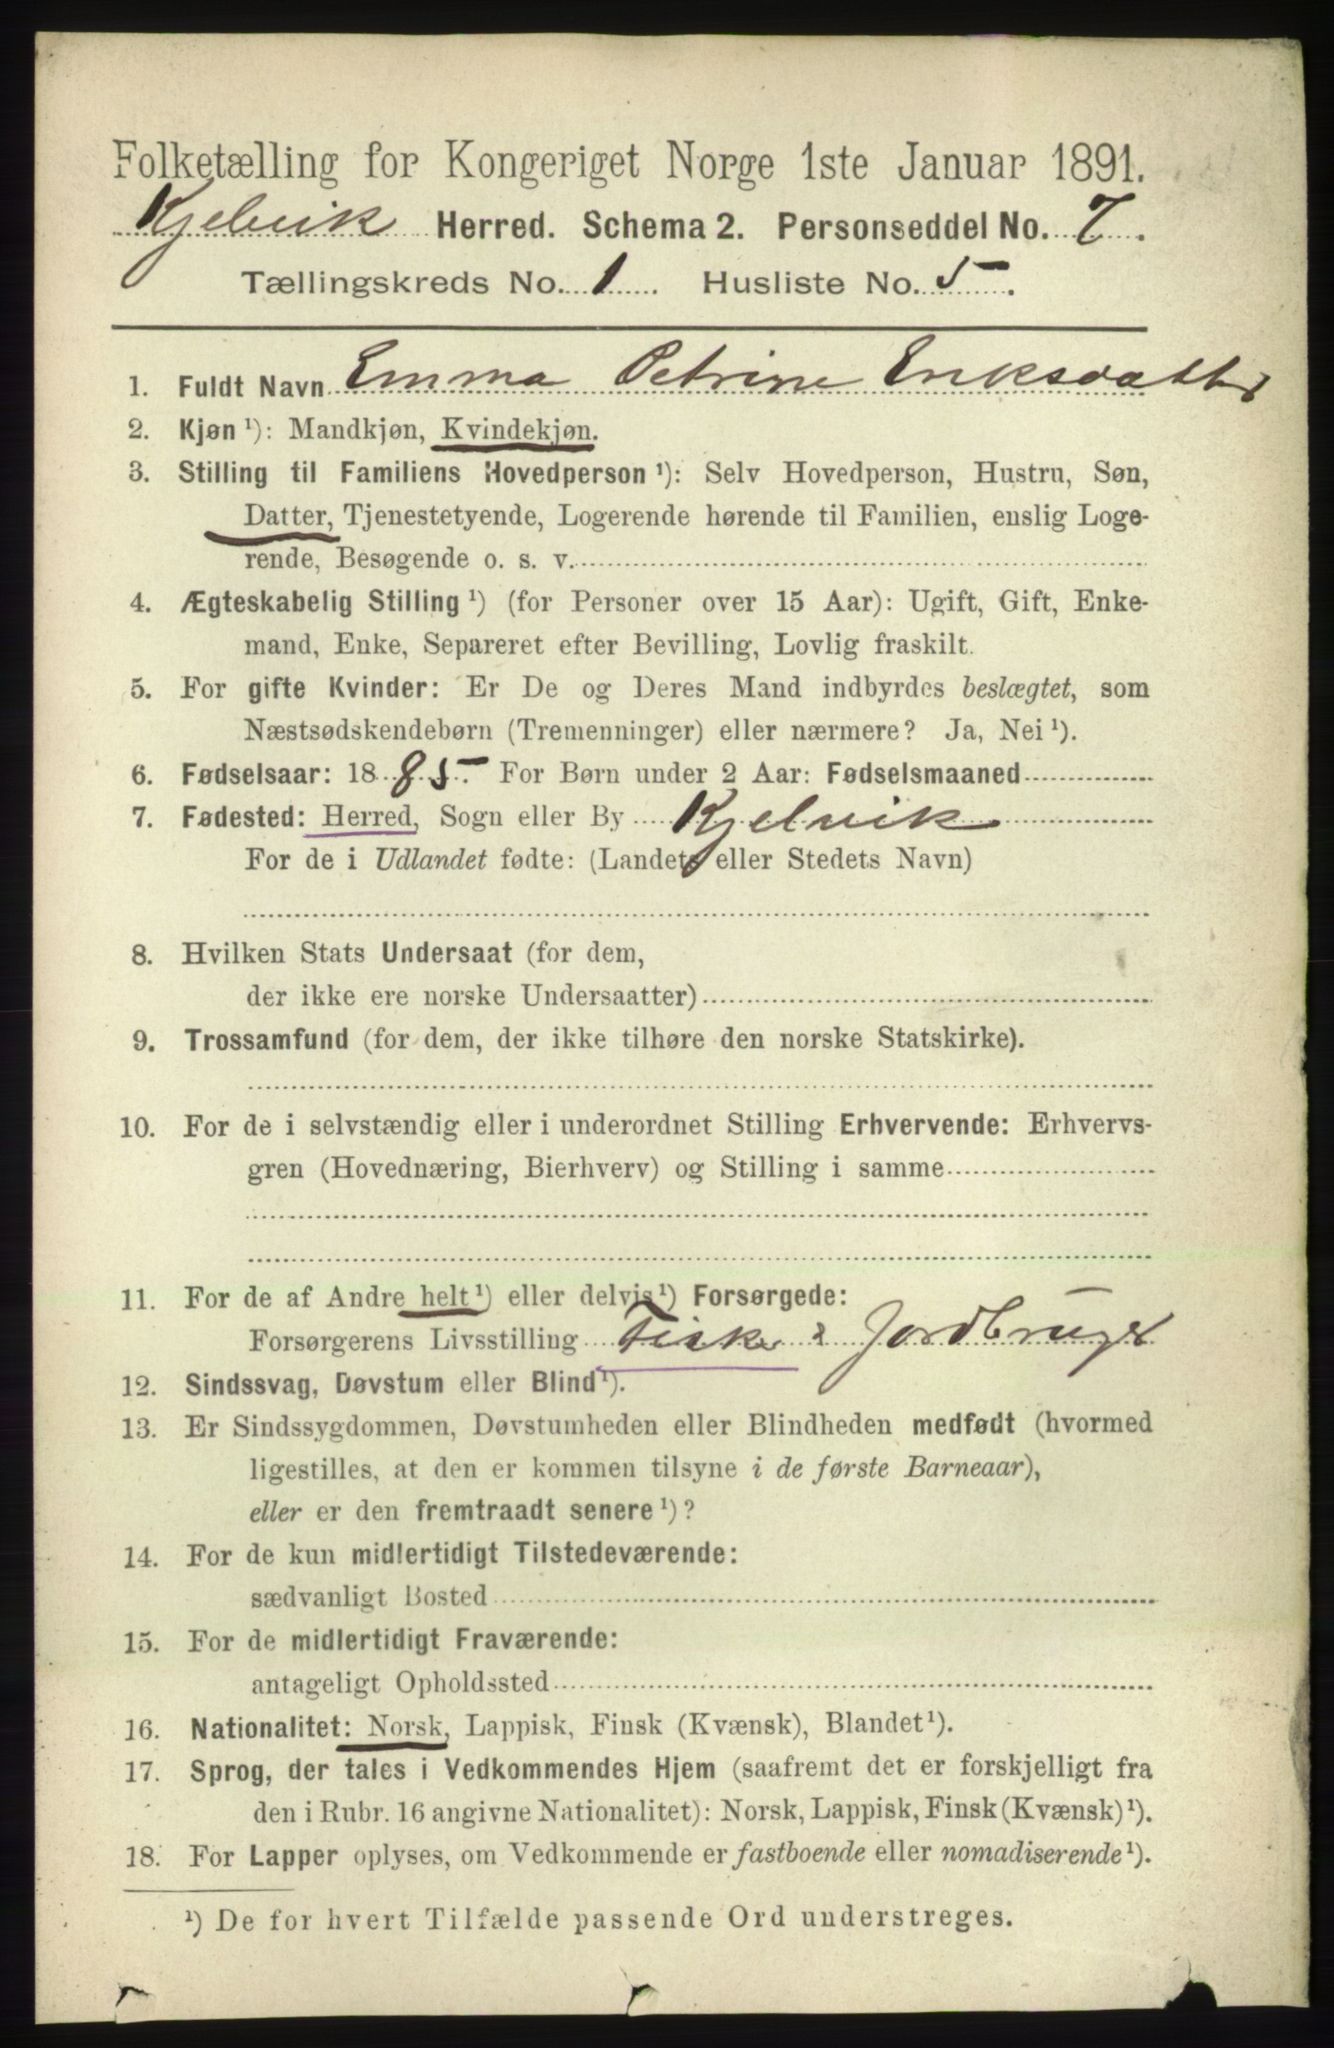 Folketælling for Kongeriget Norge 1ste Januar 1891.
Kjelvik Herred. Schema 2. Personseddel No. 7.
Tællingskreds No. 1. Husliste No. 5.
1. Fuldt Navn Emma Petrine Eriksdatter
2. Kjøn ¹): Mandkjøn, Kvindekjøn.
3. Stilling til Familiens Hovedperson ¹): Selv Hovedperson, Hustru, Søn,
Datter, Tjenestetyende, Logerende hørende til Familien, enslig Loge-
rende, Besøgende o. s. v.
4. Ægteskabelig Stilling ¹) (for Personer over 15 Aar): Ugift, Gift, Enke-
mand, Enke, Separeret efter Bevilling, Lovlig fraskilt.
5. For gifte Kvinder: Er De og Deres Mand indbyrdes beslægtet, som
Næstsødskendebørn (Tremenninger) eller nærmere? Ja, Nei ¹).
6. Fødselsaar: 1885. For Børn under 2 Aar: Fødselsmaaned
7. Fødested: Herred, Sogn eller By Kjelvik
For de i Udlandet fødte: (Landets eller Stedets Navn)
8. Hvilken Stats Undersaat (for dem,
der ikke ere norske Undersaatter)
9. Trossamfund (for dem, der ikke tilhøre den norske Statskirke).
10. For de i selvstændig eller i underordnet Stilling Erhvervende: Erhvervs-
gren (Hovednæring, Bierhverv) og Stilling i samme
11. For de af Andre helt ¹) eller delvis ¹) Forsørgede:
Forsørgerens Livsstilling Fisker & Jordbruger
12. Sindssvag, Døvstum eller Blind ¹).
13. Er Sindssygdommen, Døvstumheden eller Blindheden medfødt (hvormed
ligestilles, at den er kommen tilsyne i de første Barneaar),
eller er den fremtraadt senere ¹)?
14. For de kun midlertidigt Tilstedeværende:
sædvanligt Bosted
15. For de midlertidigt Fraværende:
antageligt Opholdssted
16. Nationalitet: Norsk, Lappisk, Finsk (Kvænsk), Blandet ¹).
17. Sprog, der tales i Vedkommendes Hjem (saafremt det er forskjelligt fra
den i Rubr. 16 angivne Nationalitet): Norsk, Lappisk, Finsk (Kvænsk) ¹).
18. For Lapper oplyses, om Vedkommende er fastboende eller nomadiserende ¹).
¹) De for hvert Tilfælde passende Ord understreges.